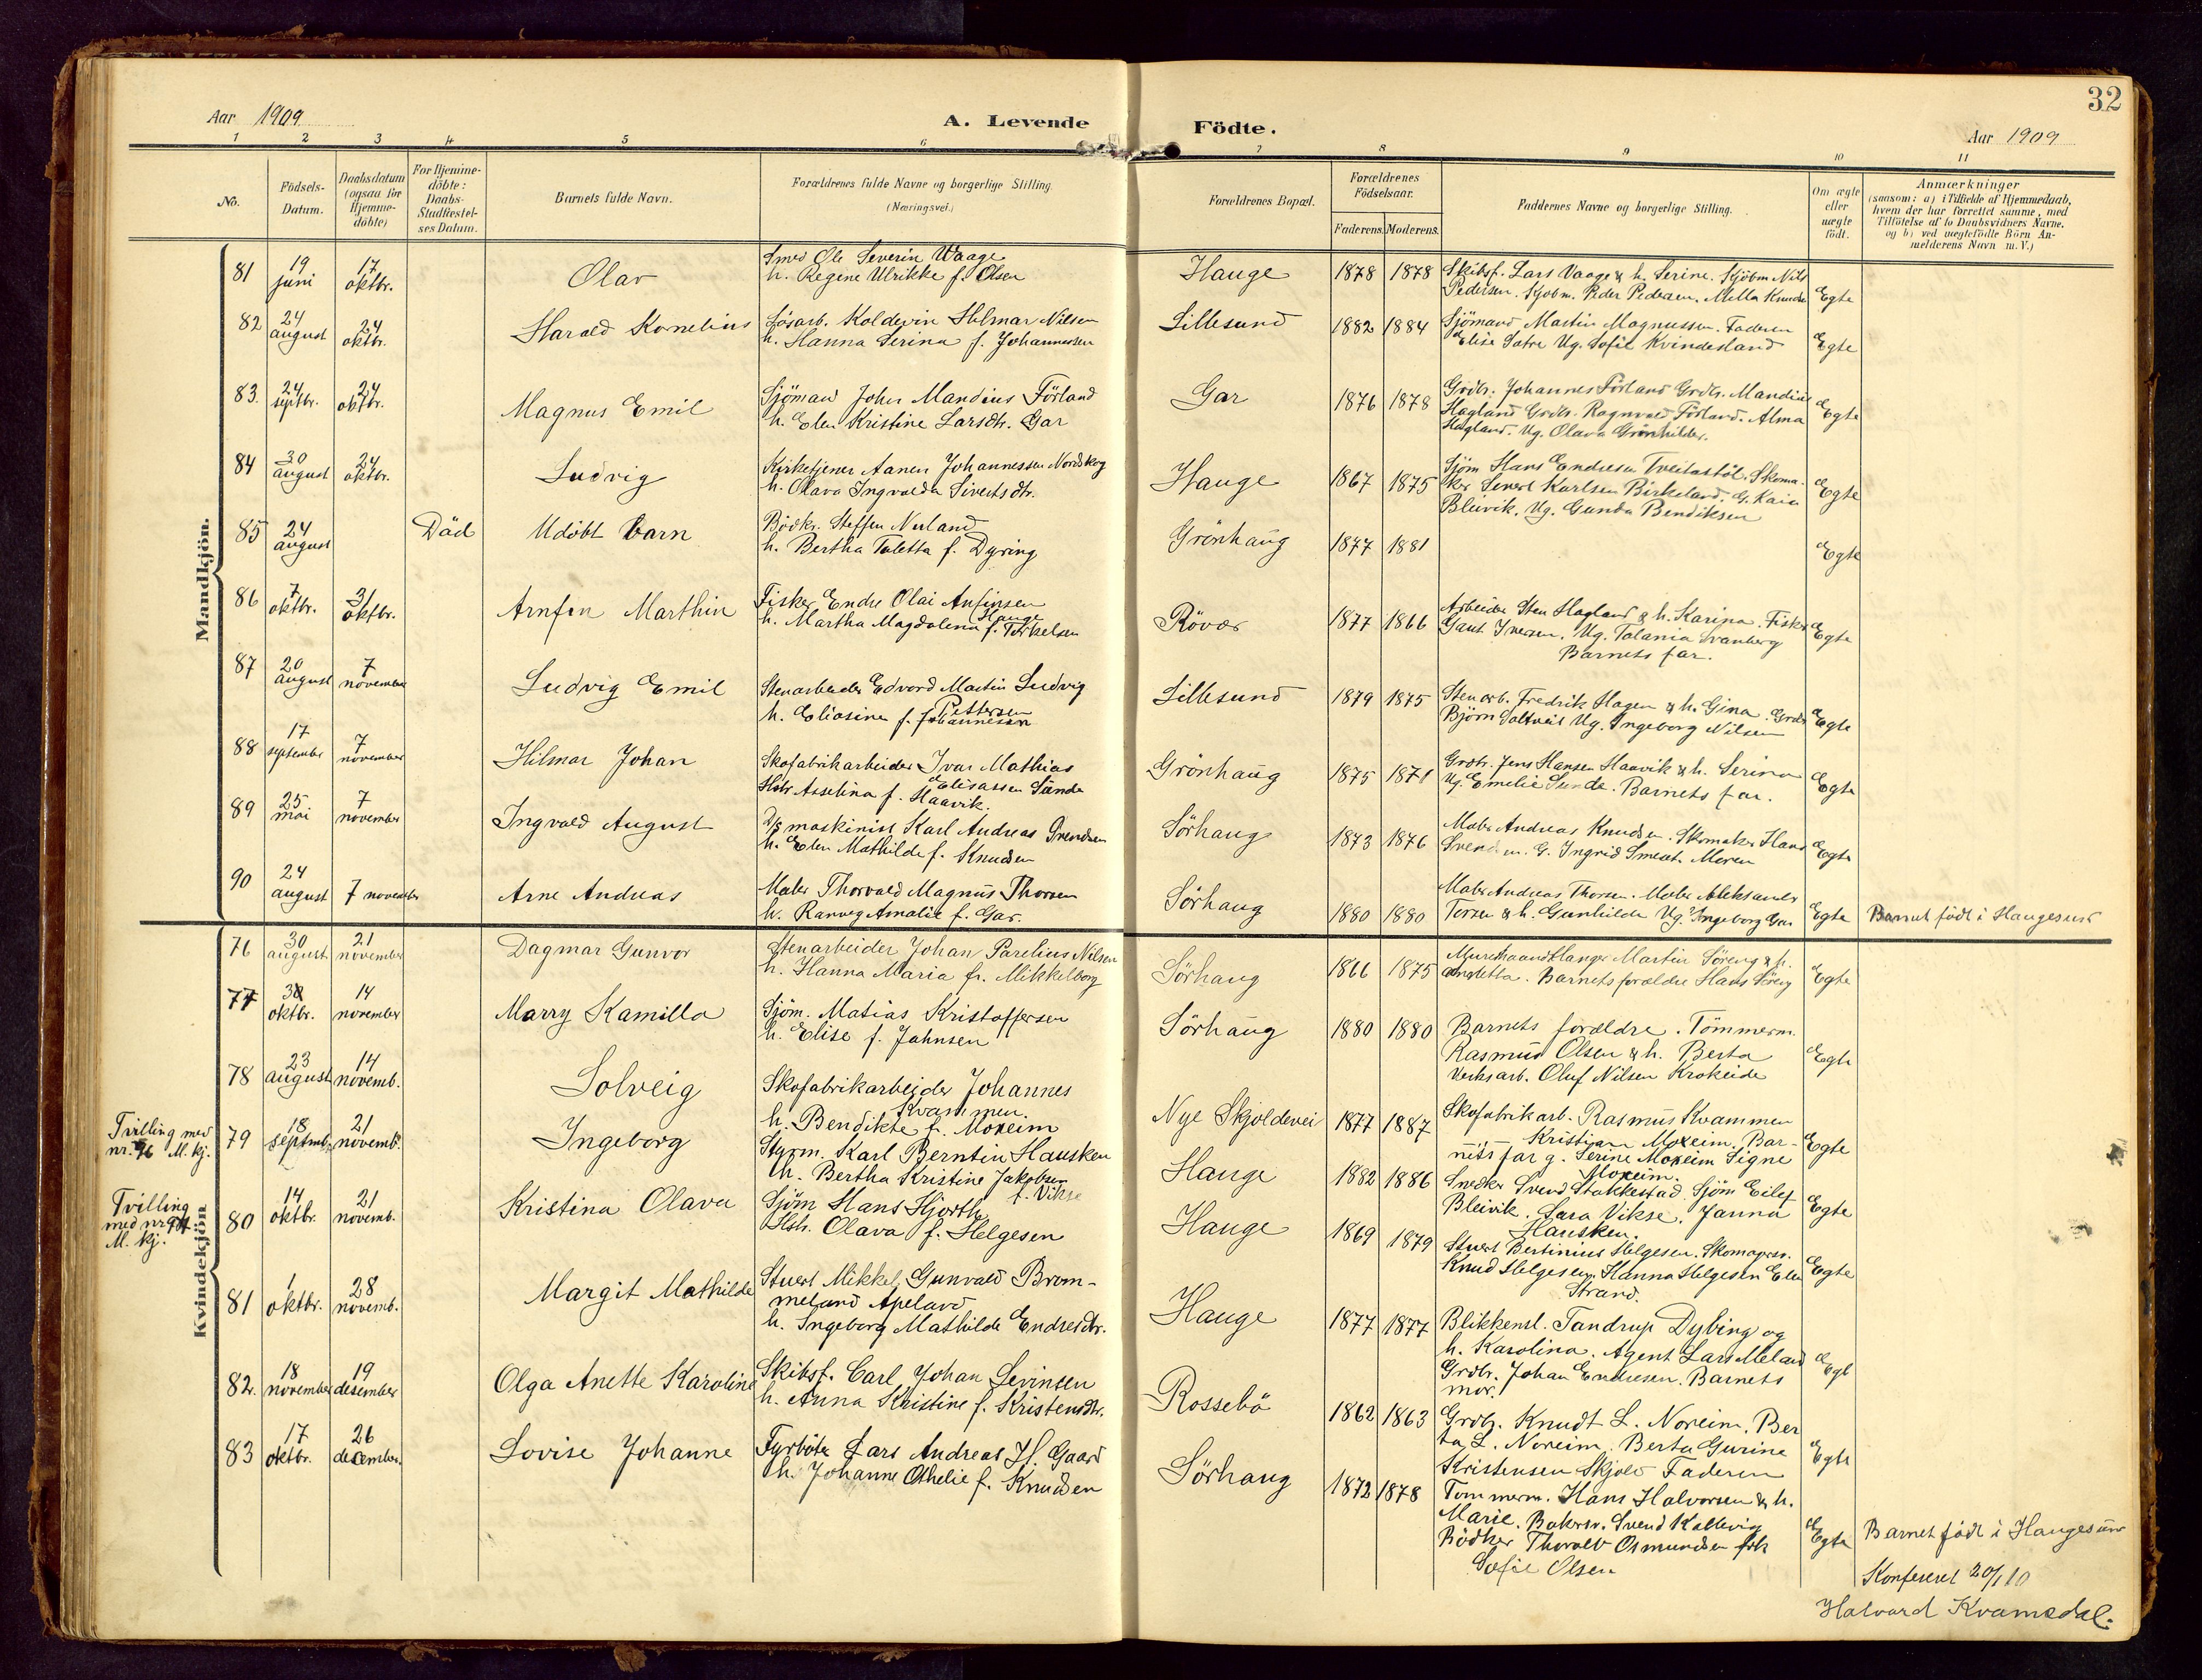 32
Aar 1909
A. Levende
Födte.
Aar 1909
1 2 3 4 5 6 7 8 9 10 11
No.
Födsels-
Datum.
Daabsdatum
(ogsaa for
Hjemme-
döbte)
For Hjemme-
döbte:
Daabs-
Stadfæstel-
ses Datum.
Barnets fulde Navn.
Forældrenes fulde Navne og borgerlige Stilling.
(Næringsvei.)
Forældrenes Bopæl.
Forældrenes
Födselsaar.
Faderens.
Moderens.
Faddernes Navne og borgerlige Stilling.
Om ægte
eller
uægte
födt.
Anmærkninger
(saasom: a) i Tilfælde af Hjemmedaab,
hvem der har forrettet samme, med
Tilföielse af to Daabsvidners Navne.
og b) ved uægtefödte Börn An-
melderens Navn m. V.)
Mandkjön.
81
19
juni
17
oktbr.
Olav
Smed Ole Severin Waage
h. Regine Ulrikke f. Olsen
Hauge
1878
1878
Skibsf. Lars Vaage & h. Serine. Sjöbm Nils
Pedersen. Sjöbm. Peder Pedersen. Mella Knudse
Egte
82
24
august
24
oktbr.
Harald Kornelius
Lösarb. Koldevin Hilmar Nilsen
h. Hanna Serina f. Johannessen
Lillesund
1882
1884
Sjömand Martin Magnussen. Faderen
Elise Satre Ug. Sofie Kvindesland
Egte
83.
24
septbr.
24
oktbr.
Magnus Emil
Sjöman Johs Mandius Förland
h. Elen Kristine Larsdtr. Gar
Gar
1876
1878
Grdbr. Johannes Förland Grdbr. Mandius
Hagland Grdbr. Ragnvald Förland. Alma
Hagland. Ug. Olava Grönhilder.
Egte
84
30
august
24
oktbr.
Ludvig
Kirketjener Aanen Johannessen Nordskog
h. Olava Ingvalda Sivertsdtr.
Hauge
1867
1875
Sjöm Hans Endresen Tveitastöl. Skoma-
ker Sivert Karlsen Birkeland. G. Kaia
Bleivik. Ug. Gunda Bendiksen
Egte
85
24
august
Död
Udöbt barn
Bödkr. Steffen Neuland
h. Bertha Toletta f. Dyring
Grönhaug
1877
1881
Egte
86
7
oktbr.
31
oktbr.
Arnfin Marthin
Fisker Endre Olai Anfinsen
Hauge
h. Martha Magdalena f. Torkelsen
Rövær
1877
1866
Arbeider Sten Hagland & h. Karina. Fisker
Gaut Iversen. Ug. Talania Svanberg
Barnets far.
Egte
87
20
august
7
november
Ludvig Emil
Stenarbeider Edvard Martin Ludvig
Pettersen
h. Eliasine f. Johannessen
Lillesund
1879
1875
Stenarb. Fredrik Hagen & h. Gina. Grdbr
Björn Saltveit Ug. Ingeborg Nilsen
Egte
88
17
september
7
november
Hilmar Johan
Skofabrikarbeider Ivar Mathias
Elisassen Sunde
Hstr Asseline f. Haavik.
Grönhaug
1875
1871
Grdbr. Jens Hansen Haavik & h. Serina
Ug. Emelie Sunde. Barnets far.
Egte
89
25
mai
7
november
Ingvald August
D/S maskinist Karl Andreas Svendsen
h. Elen Mathilde f. Knudsen
Sörhaug
1873
1876
Maler Andreas Knudsen. Skomaker Hans
Svendsen. G. Ingrid Smeat. Moren
Egte
90
24
august
7 november
Arne Andreas
Maler Thorvald Magnus Thorsen
h. Ranveg Amalie f. Gar.
Sörhaug
1880
1880
Maler Andreas Thorsen. Maler Aleksander
Torsen & h. Gunhilda Ug. Ingeborg Gar
Egte
Barnet födt i Haugesund
Kvindekjön
76
30
august
21
november
Dagmar Gunvor
Stenarbeider Johan Parelius Nilsen
h. Hanna Maria f. Mikkelborg
Sörhaug
1866
1875
Martin Söreng & h.
Barnets forældre Hans Söreng
Egte
77
30
oktbr.
14
november
Marry Kamilla
Sjöm. Matias Kristoffersen
h. Elise f. Jahnsen
Sörhaug
1880
1880
Barnets forældre. Tömmerm.
Rasmus Olsen & h. Berta
Verksarb. Oluf Nilsen Krokeide
Egte
78
23
august
14
novemb.
Solveig
Skofabrikarbeider Johannes
Kvammen.
h. Bendikte f. Moxeim
Nye Skjoldevei
1877
1887
Skofabrikarb. Rasmus Kvammen
Kristian Moxeim. Bar-
nets far g. Serine Moxeim Signe
Moxeim.
Egte
Tvilling med
nr. 96 M. kj.
79
18
septmb.
21
novemb.
Ingeborg
Styrm. Karl Berntin Hausken
h. Bertha Kristine Jakobsen
f. Vikse
Hauge
1882
1886
Snedker Svend Stakkestad. Sjöm Eilef
Bleivik. Sara Vikse. Janna
Hausken.
Egte
Tvilling
med nr 94
M. kj.
80
14
oktbr.
21
novemb.
Kristina Olava
Sjöm Hans Hjorth
Hstr. Olava f. Helgesen
Hauge
1869
1879
Stuert Bertinius Helgesen. Skomagersv.
Knud Helgesen. Hanna Helgesen Elen
Strand.
Egte
81
1
oktbr.
28
novemb.
Margit Mathilde
Stuert Mikkel Gunvald Brom-
meland Apeland
h. Ingeborg Mathilde Endresdtr.
Hauge
1877
1877
Blikkensl. Tandrup Dybing og
h. Karolina. Agent Lars Meland
Grdbr. Johan Endresen. Barnets
mor.
Egt
82.
18
november
19
desember
Olga Anette Karoline
Skibsf. Carl Johan Sevinsen
h. Anna Kristine f. Kristensdtr.
Rossebö
1862
1863
Grdbr. Knudt L. Noreim. Ber
ta L. Noreim. Berta Gurine
Kristensen Skjold Faderen
Egte
83
17
oktbr.
26
december.
Lovise Johanne
Fyrböter Lars Andreas H. Gaard
h. Johanne Othelie f. Knudsen
Sörhaug
1872
1878
Tömmerm. Hans Halvorsen & h.
Marie. Bakersv. Svend Kallevig
Bödker Thorvald Osmundsen frk
Sofie Olsen
Egte
Barnet födt i Haugesund
Konfereret 20/1 10
Halvard Kvamsdal.